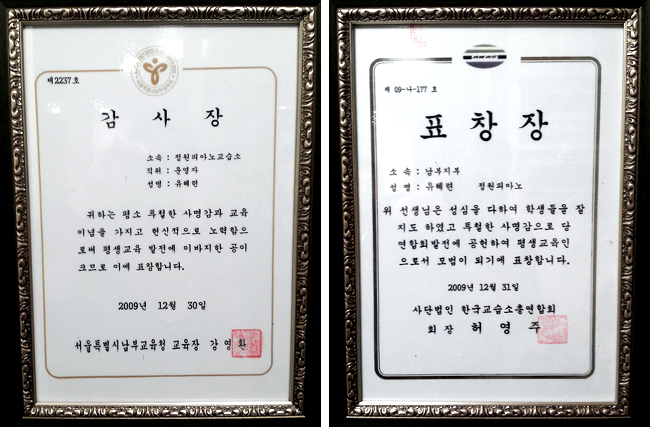 제2237호
감 사 장
소속 : 정원피아노교습소
직위 : 운영자
성명 : 유혜련
귀하는 평소 특철한 사명감과 교육
이념을 가지고 헌신적으로 노력함으
로써 평생교육 발전에 이바지한 공이
크므로 이에 표창합니다.
2009년 12월 30일
서울특별시남부교육청 교육장 강영환
제 09-나-177 호
표 창 장
소 속 : 남부지부
성 명 : 유혜련 정원피아노
위 선생님은 성심을 다하여 학생들을 잘
지도 하였고 특철한 사명감으로 당
연합회발전에 공헌하여 평생교육인
으로서 모범이 되기에 표창합니다.
2009년 12월 31일
사단법인 한국교습소총연합회
회 장 허 영 주